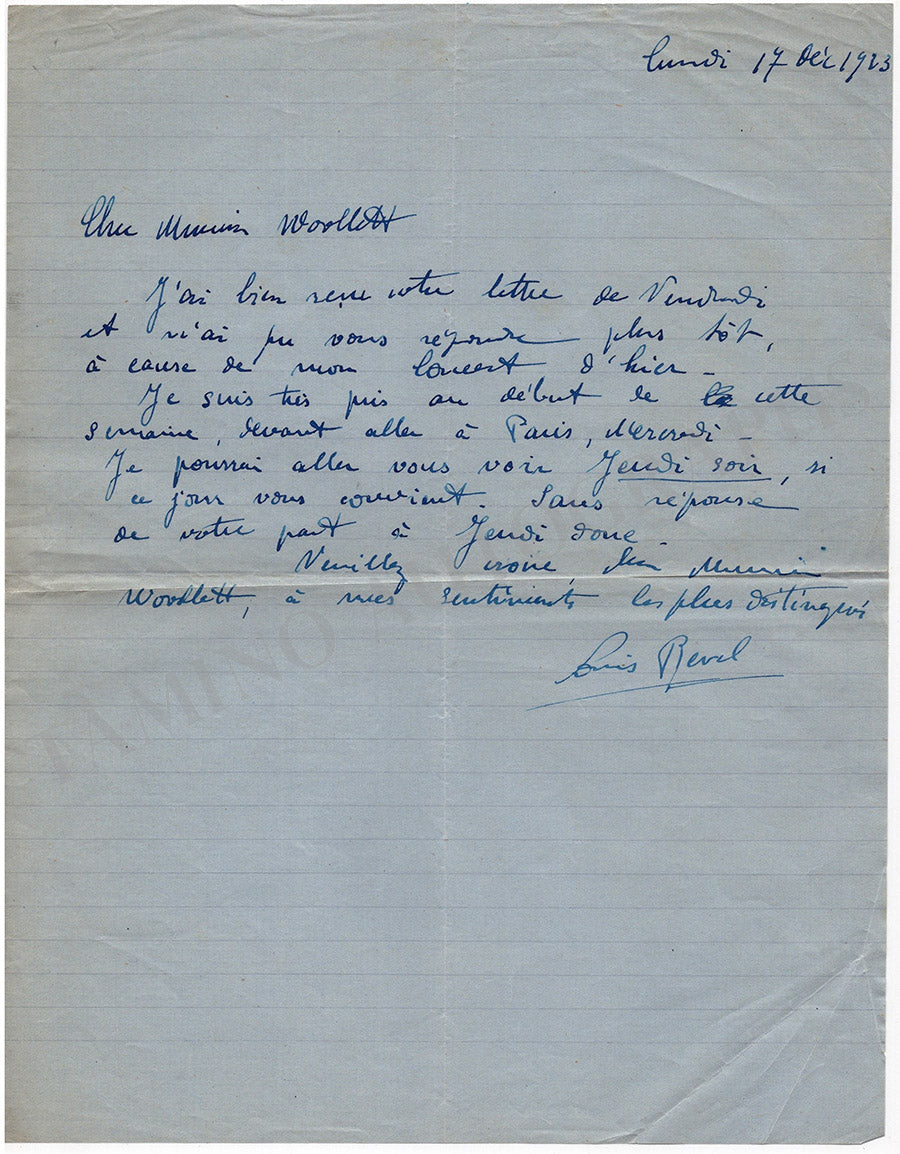 Lundi 17 Déc 1923
Cher Monsieur Woollett
J'ai bien reçu votre lettre de Vendredi
et n'ai pu vous répondre plus tôt,
à cause de mon Concert d'hier -
Je suis très pris au début de cette
semaine, devant aller à Paris, Mercredi -
Je pourrai aller vous voir Jeudi soir, si
ce jour vous convient. Sans réponse
de votre part à Jeudi donc
Veuillez croire, cher Monsieur
Woollett, à mes sentiments les plus distingués
Louis Revel
TAMINO